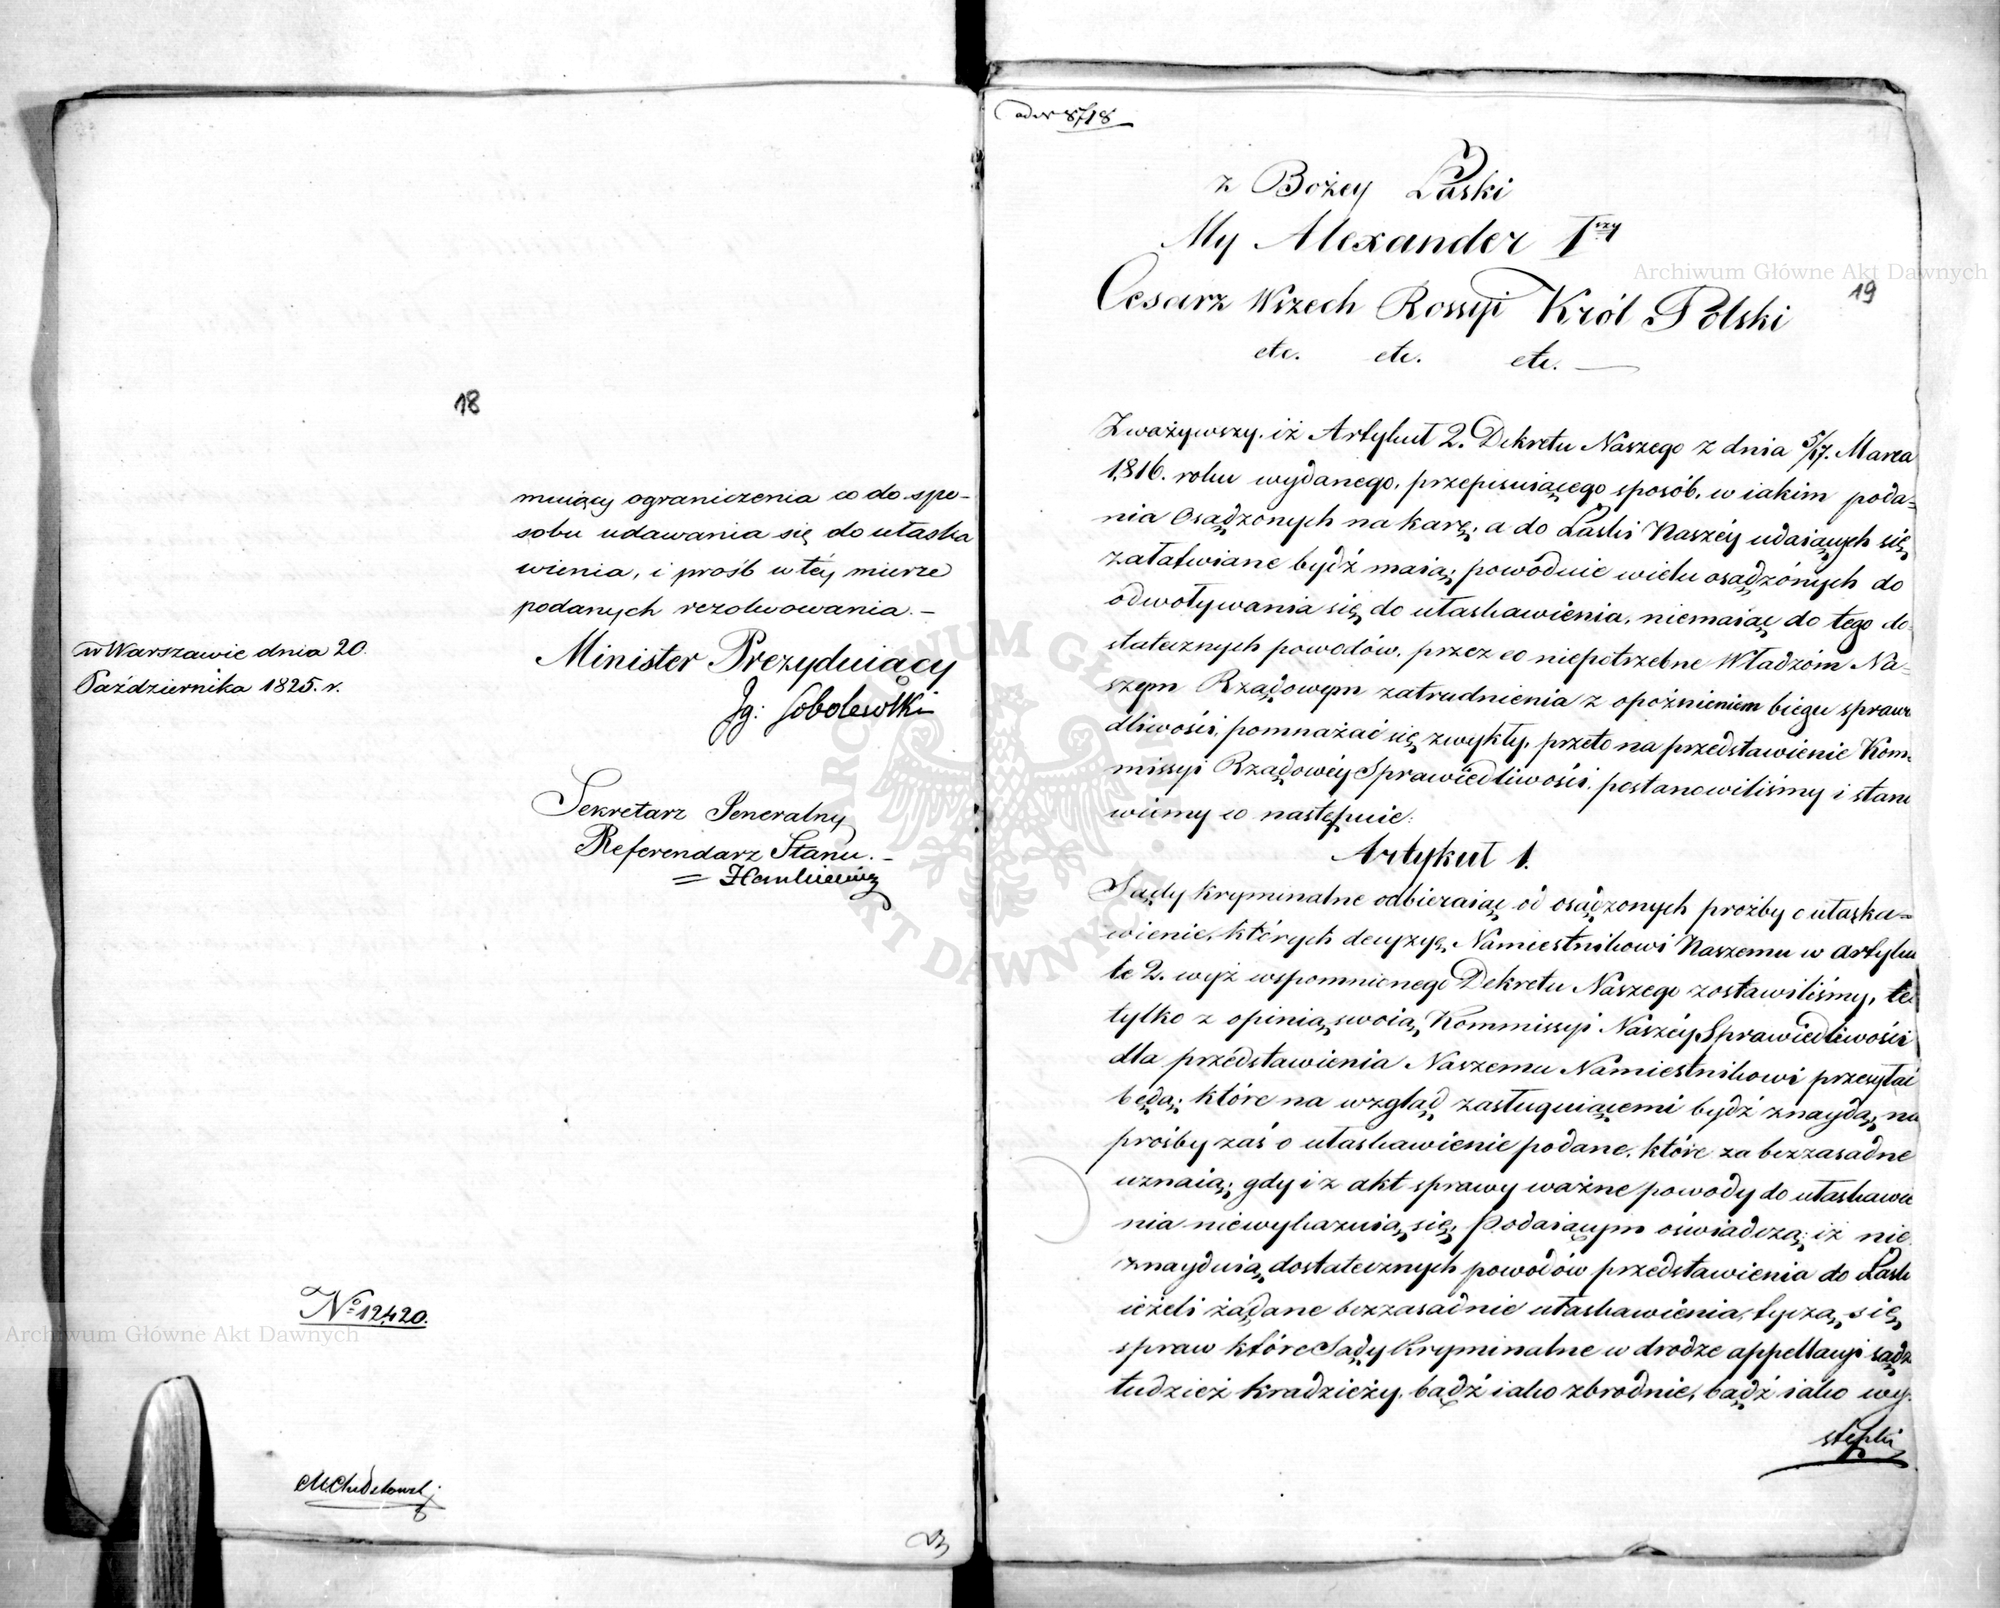 18
muiący ograniczenia co do spo-
sobu udawania się do ułaska
wienia, i próśb w téy mierze
podanych rezolwowania. –
w Warszawie dnia 20.
Października 1825. r.
Minister Prezyduiący
Jg: Sobolewski
Sekretarz Jeneralny
Referendarz Stanu. –
= Hankiewicz
No 12,420.
ad N 8718
19
z Bożey Łaski
My Alexander Iszy
Cesarz Wszech Rossyi Król Polski
etc. etc. etc. —
Zważywszy, iż Artykuł 2. Dekretu Naszego z dnia 5/17. Marca
1816. roku wydanego, przepisuiącego sposób, w iakim poda-
nia Osądzonych na karę, a do Łaski Naszéy udaiących się,
załatwiane bydź maią; powodnie wielu osądzonych do
odwoływania się do ułaskawienia, niemaiąc do tego do-
statecznych powodów, przez co niepotrzebne Władzóm Na-
szym Rządowym zatrudnienia z opóźnieniem biegu spraw
dliwości, pomnażać się zwykły, przeto na przedstawienie Kom-
missyi Rządowéy Sprawiedliwości, postanowiliśmy i stano
wiemy co następuie:
Artykuł 1.
Sądy Kryminalne odbieraiąc od osądzonych proźby o ułaska=
wienie, których decyzyę, Namiestnikowi Naszemu w Artyku
le 2. wyż wspomnionego Dekretu Naszego zostawiliśmy, te
tylko z opinią swoią Kommissyi Naszéy Sprawiedliwości
dla przedstawienia Naszemu Namiestnikowi przesyłać
będą; które na wzgląd zasługuiącemi bydź znaydą, na
prośby zaś o ułaskawienie podane, które za bezzasadne
uznaią; gdy i z akt sprawy ważne powody do ułaskawie
nia niewykazuią się, Podaiącym oświadczą; iż nie
znayduią dostatecznych powodów przedstawienia do Łaski
ieżeli żądane bezzasadnie ułaskawienia, tyczą się
spraw które Sądy Kryminalne w drodze appellacyi sądzą
tudzież kradzieży, bądź iako zbrodnie, bądź iako wy-
stępki
Archiwum Główne Akt Dawnych
Archiwum Główne Akt Dawnych
ARCHIWUM GŁÓWNE AKT DAWNYCH